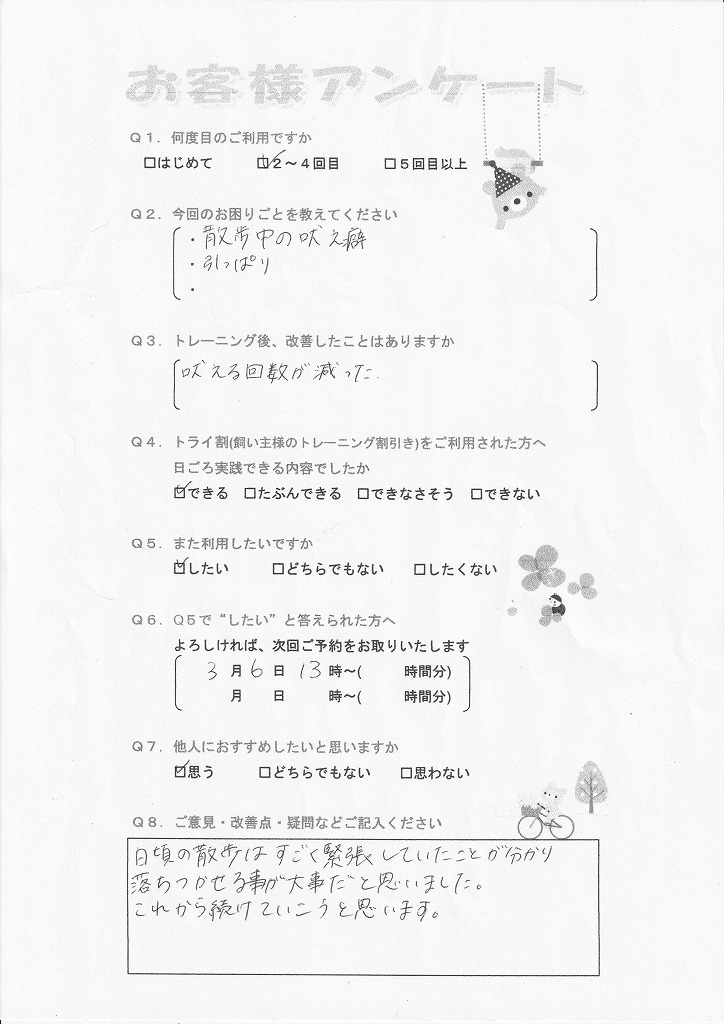 お客様アンケート
Q1. 何度目のご利用ですか
□はじめて ☑2~4回目 □5回目以上
Q2. 今回のお困りごとを教えてください
・散歩中の吠え癖
・引っぱり
・
Q3. トレーニング後、改善したことはありますか
吠える回数が減った.
Q4. トライ割(飼い主様のトレーニング割引き)をご利用された方へ
日ごろ実践できる内容でしたか
☑できる □たぶんできる □できなさそう □できない
Q5. また利用したいですか
☑したい □どちらでもない □したくない
Q6. Q5で“したい”と答えられた方へ
よろしければ、次回ご予約をお取りいたします
3月6日 13時~( 時間分)
月 日 時~( 時間分)
Q7. 他人におすすめしたいと思いますか
☑思う □どちらでもない □思わない
Q8. ご意見・改善点・疑問などご記入ください
日頃の散歩はすごく緊張していたことが分かり
落ちつかせる事が大事だと思いました。
これから続けていこうと思います。